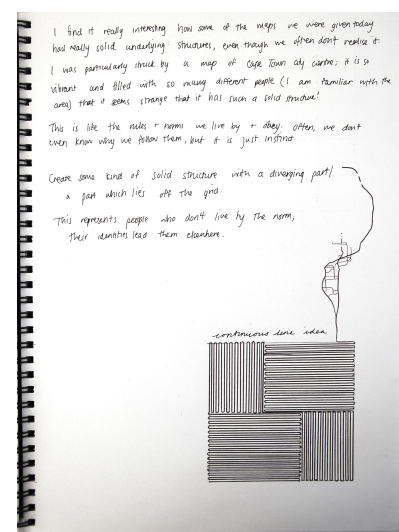 I find it really interesting how some of the maps we were given today
had really solid underlying structures, even though we often don't realise it.
I was particularly struck by a map of Cape Town city centre; it is so
vibrant and filled with so many different people (I am familiar with the
area) that it seems strange that it has such a solid structure!
This is like the rules + norms we live by + obey. Often, we don't
even know why we follow them, but it is just instinct.
Create some kind of solid structure with a diverging part/
a part which lies off the grid.
This represents people who don't live by the norm;
their identities lead them elsewhere.
continuous line idea